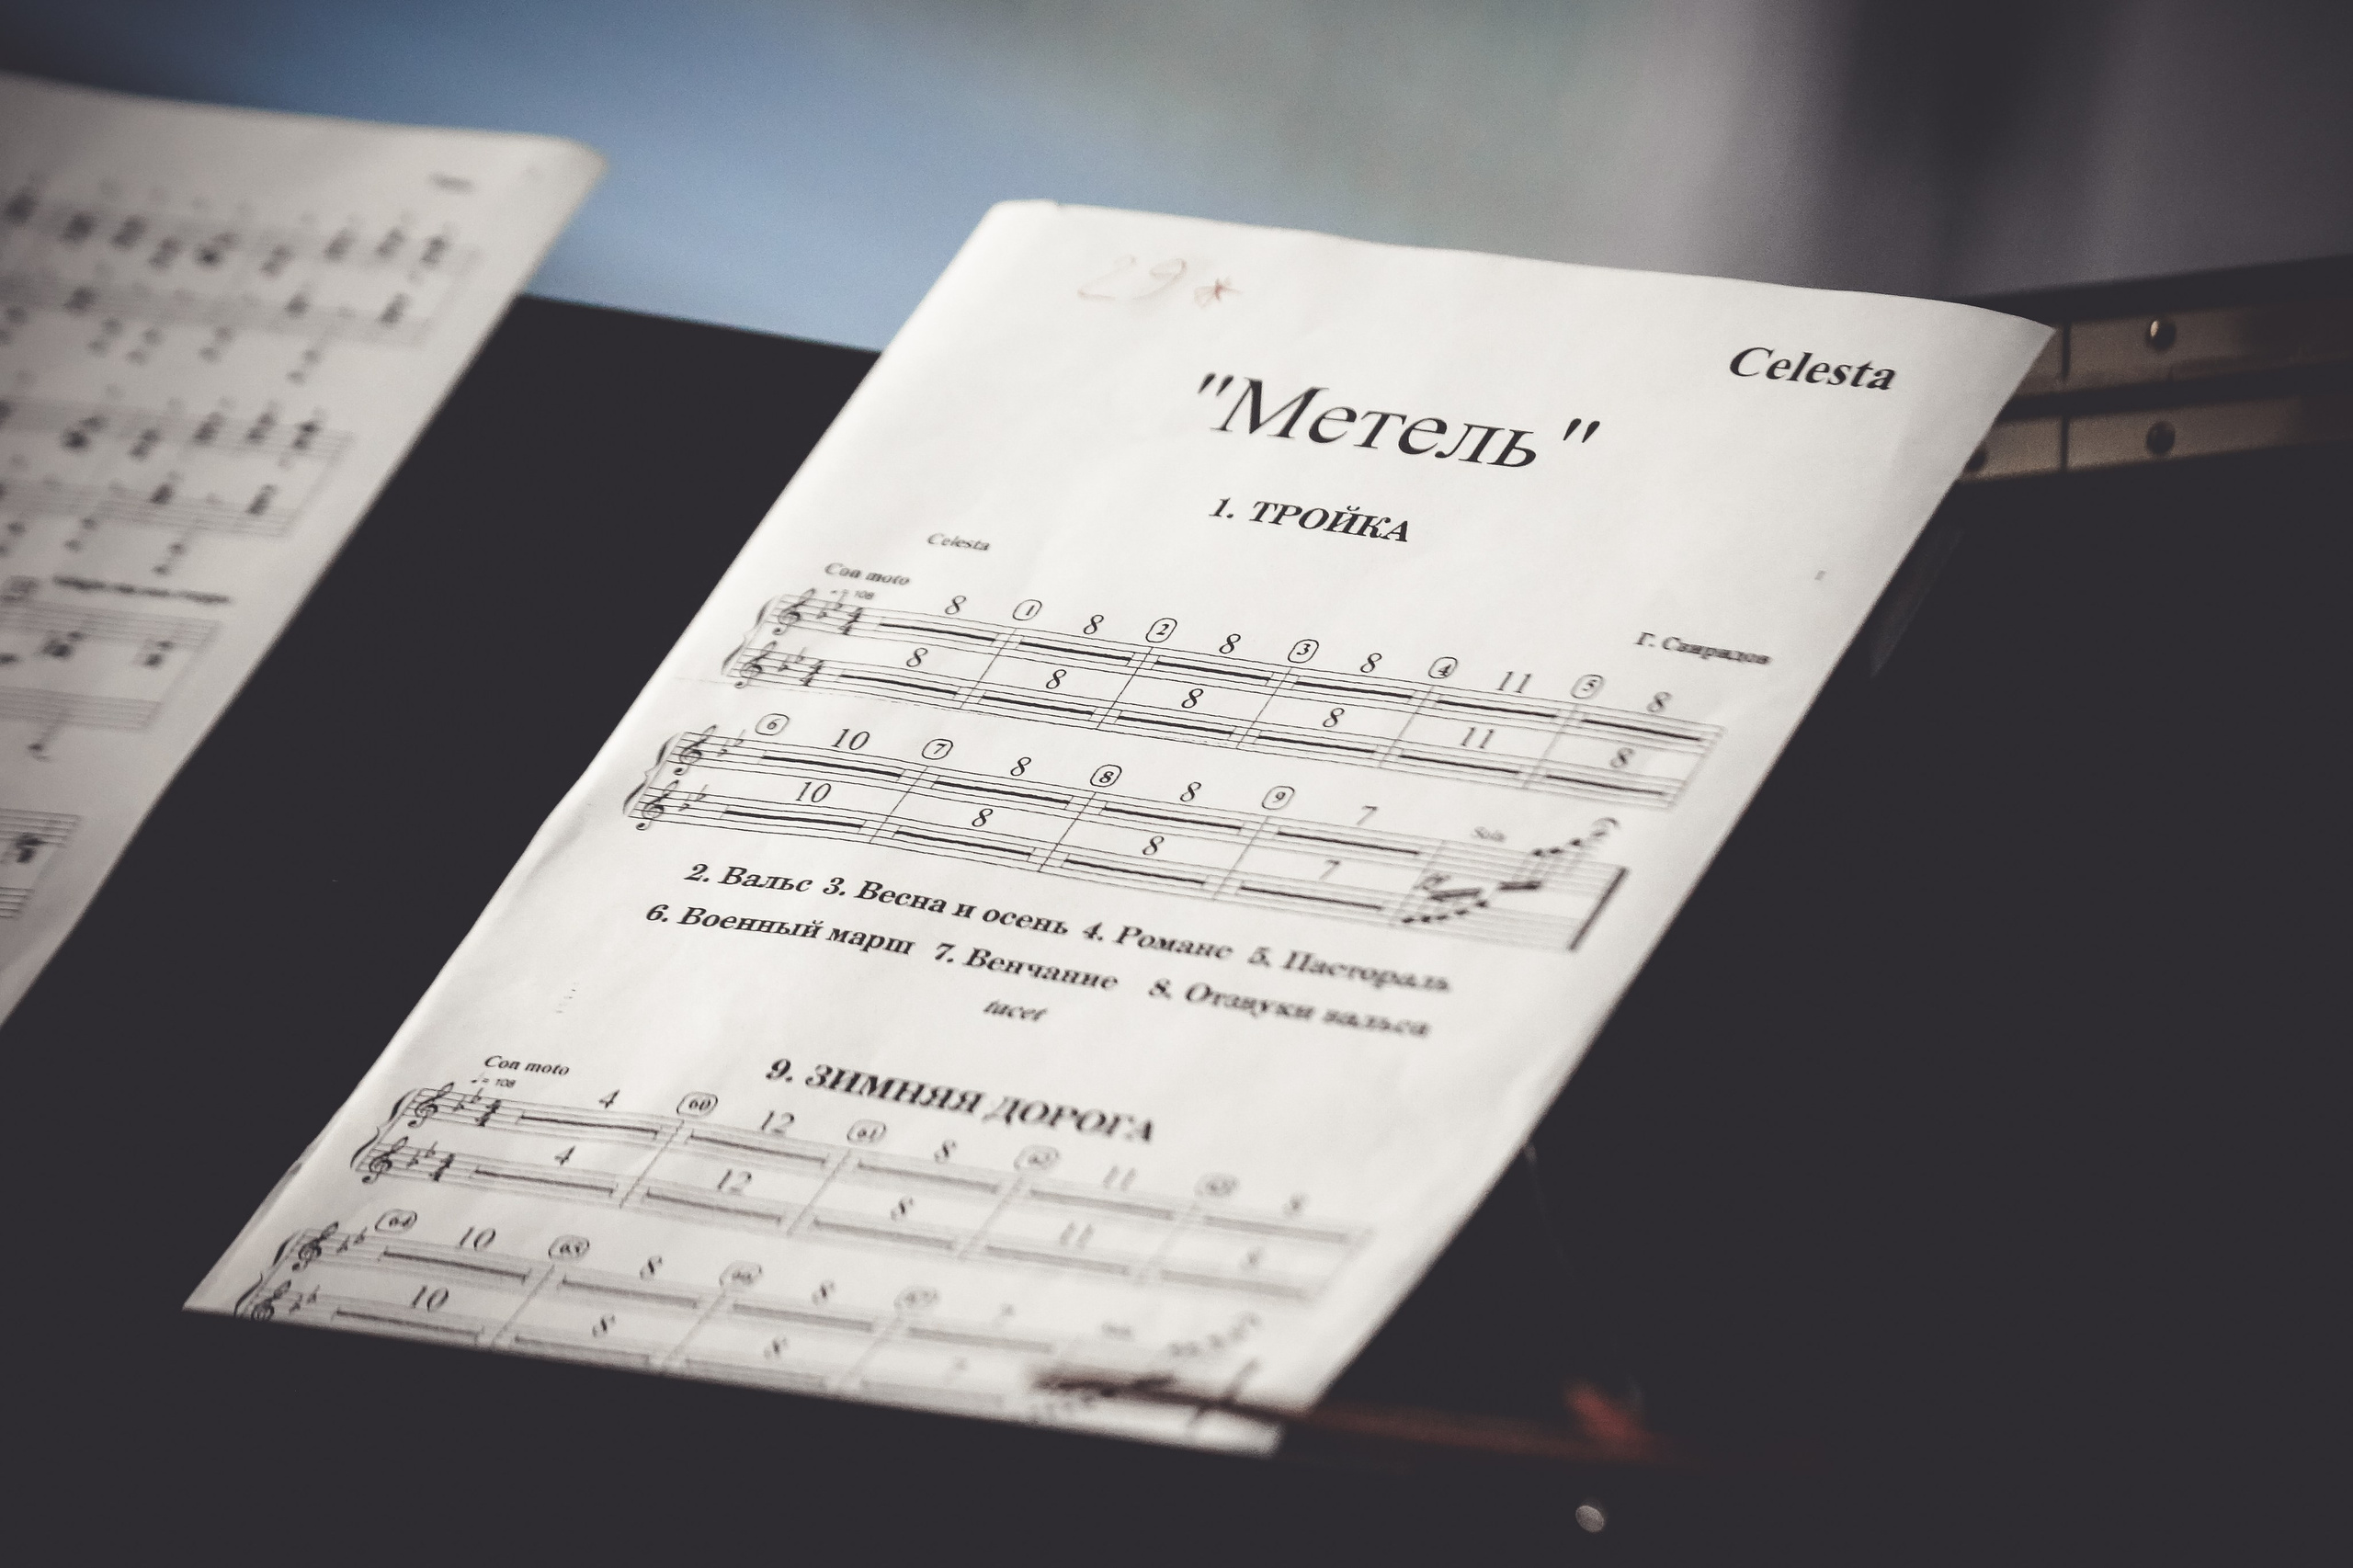 29*
Celesta
"Метель"
1. ТРОЙКА
Celesta
Con moto
= 108
Г. Свиридов
8 1 8 2 8 3 8 4 11 5 8
8 8 8 8 11 8
6 10 7 8 8 8 9 7 Solo
10 8 8 7
2. Вальс 3. Весна и осень 4. Романс 5. Пастораль
6. Военный марш 7. Венчание 8. Отзвуки вальса
tacet
9. ЗИМНЯЯ ДОРОГА
Con moto
♩= 108
4 60 12 61 8 62 11 63 8
4 12 8 11 8
64 10 65 8 66 8 67
10 8 8